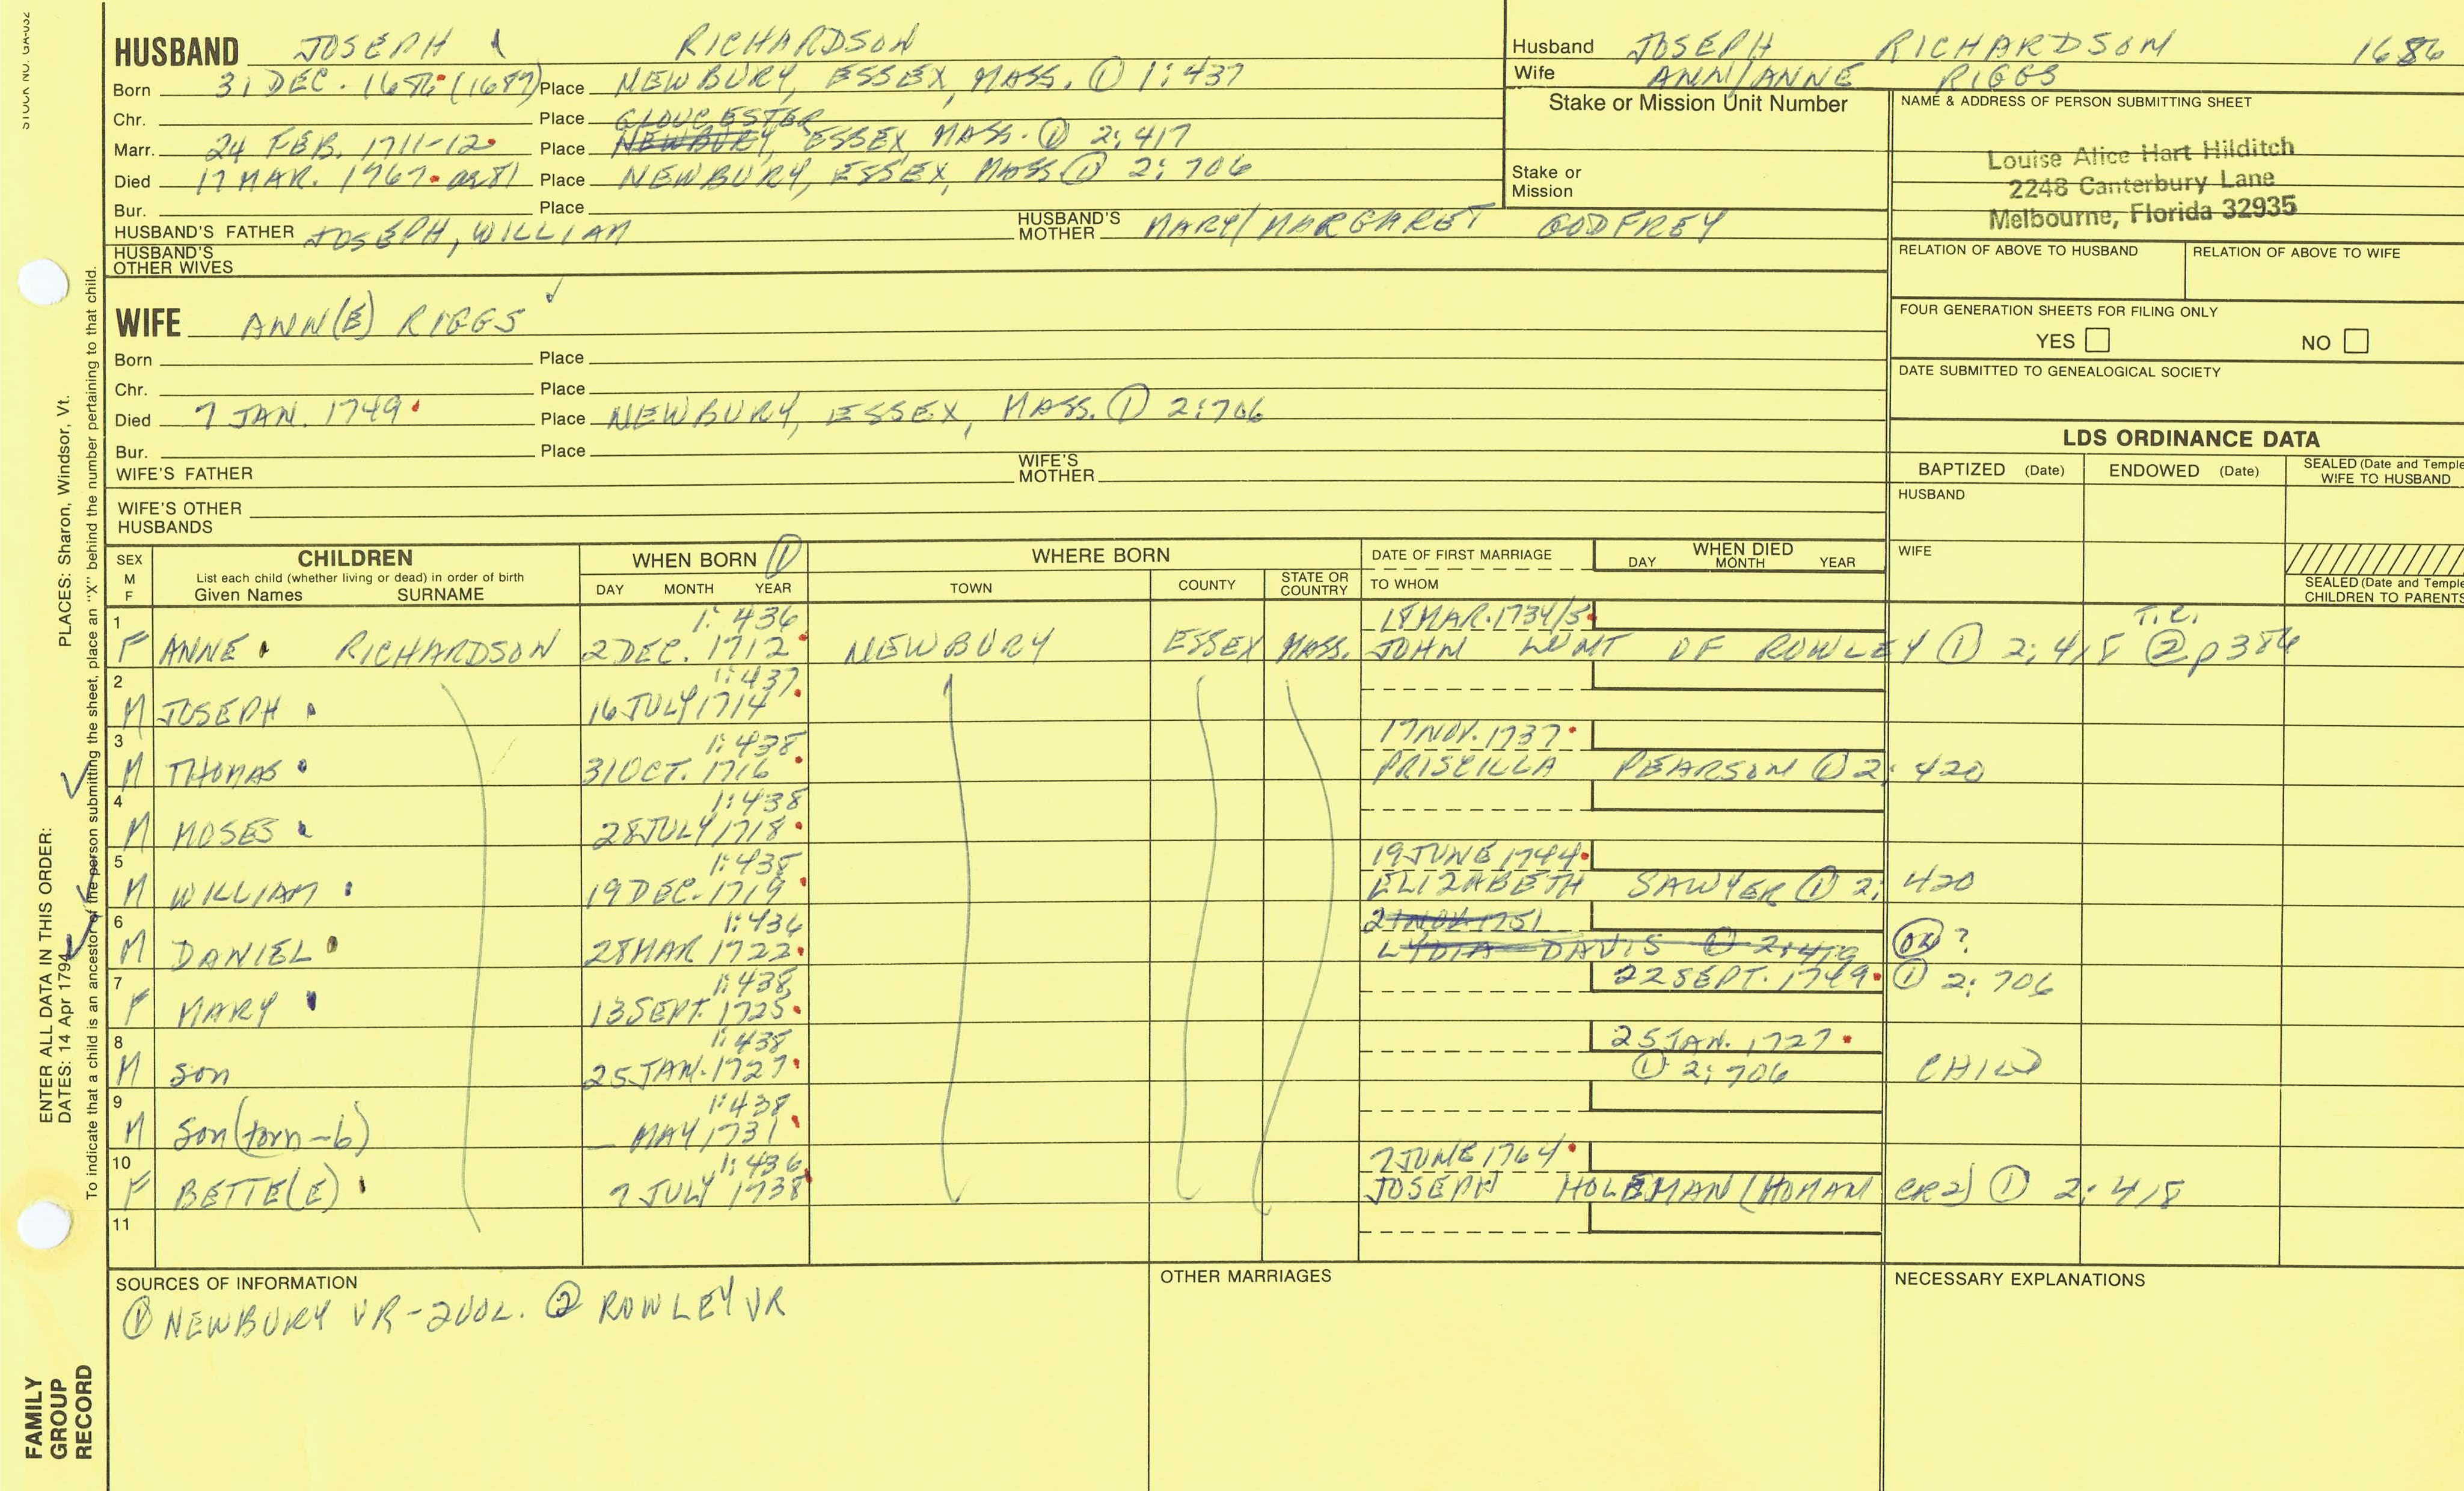 STOCK NO. GA-032
HUSBAND JOSEPH RICHARDSON
Born 31 DEC. 1686 (1687) Place NEWBURY, ESSEX, MASS. ① 1:437
Chr. Place GLOUCESTER
Marr. 24 FEB. 1711-12 Place NEWBURY, ESSEX, MASS. ① 2:417
Died 17 MAR. 1767 Place NEWBURY, ESSEX, MASS ① 2:706
Bur. Place
HUSBAND'S FATHER JOSEPH, WILLIAM HUSBAND'S MOTHER MARY/MARGARET GODFREY
HUSBAND'S OTHER WIVES
Husband JOSEPH RICHARDSON 1686
Wife ANN/ANNE RIGGS
Stake or Mission Unit Number
Stake or Mission
NAME & ADDRESS OF PERSON SUBMITTING SHEET
Louise Alice Hart Hilditch
2248 Canterbury Lane
Melbourne, Florida 32935
RELATION OF ABOVE TO HUSBAND RELATION OF ABOVE TO WIFE
FOUR GENERATION SHEETS FOR FILING ONLY
YES NO
DATE SUBMITTED TO GENEALOGICAL SOCIETY
WIFE ANN(E) RIGGS
Born Place
Chr. Place
Died 7 JAN. 1749 Place NEWBURY, ESSEX, MASS. ① 2:706
Bur. Place
WIFE'S FATHER WIFE'S MOTHER
WIFE'S OTHER HUSBANDS
LDS ORDINANCE DATA
BAPTIZED (Date) ENDOWED (Date) SEALED (Date and Temple WIFE TO HUSBAND
HUSBAND
WIFE
SEALED (Date and Temple CHILDREN TO PARENTS
SEX M F CHILDREN List each child (whether living or dead) in order of birth Given Names SURNAME
WHEN BORN ① DAY MONTH YEAR
WHERE BORN TOWN COUNTY STATE OR COUNTRY
DATE OF FIRST MARRIAGE TO WHOM
WHEN DIED DAY MONTH YEAR
1 1:436 18 MAR. 1734/5 T.R.
F ANNE RICHARDSON 2 DEC. 1712 NEWBURY ESSEX MASS. JOHN LUNT OF ROWLEY ① 2:418 ② p386
2 1:437
M JOSEPH 16 JULY 1714
3 1:438 17 NOV. 1737
M THOMAS 31 OCT. 1716 PRISCILLA PEARSON ① 2:420
4 1:438
M MOSES 28 JULY 1718
5 1:438 19 JUNE 1744
M WILLIAM 19 DEC. 1719 ELIZABETH SAWYER ① 2:420
6 1:436 21 NOV. 1751
M DANIEL 28 MAR 1722 LYDIA DAVIS ① 2:419 ?
7 1:438 22 SEPT. 1749 ① 2:706
F MARY 13 SEPT. 1725
8 1:438 25 JAN. 1727
M son 25 JAN. 1727 ① 2:706 CHILD
9 1:438
M Son (torn-b) MAY 1731
10 1:436 7 JUNE 1764
F BETTE(E) 7 JULY 1738 JOSEPH HOLEMAN (HOMAN CR2) ① 2:418
11
SOURCES OF INFORMATION
① NEWBURY VR-2VOL. ② ROWLEY VR
OTHER MARRIAGES
NECESSARY EXPLANATIONS
ENTER ALL DATA IN THIS ORDER:
DATES: 14 Apr 1794 PLACES: Sharon, Windsor, Vt.
To indicate that a child is an ancestor of the person submitting the sheet, place an "X" behind the number pertaining to that child.
FAMILY
GROUP
RECORD